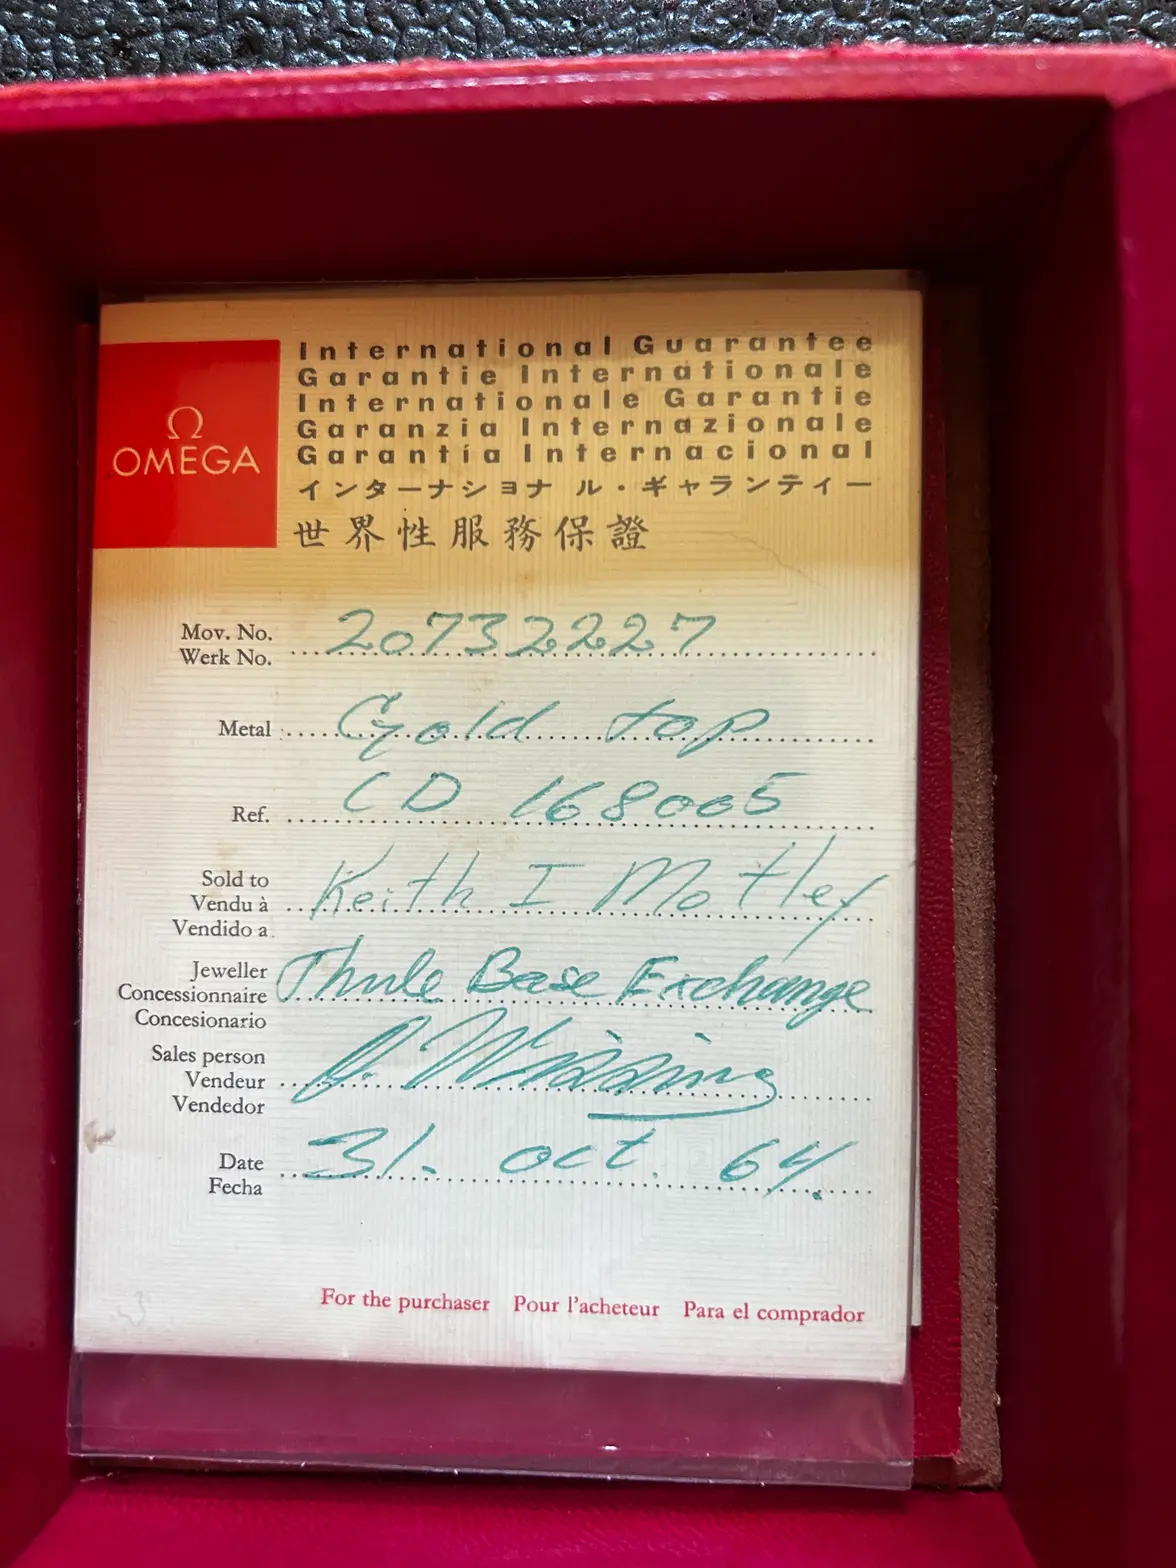 Ω
OMEGA
International Guarantee
Garantie Internationale
Internationale Garantie
Garanzia Internazionale
Garantía Internacional
インターナショナル・ギャランティー
世界性服務保證
Mov. No. 20732227
Werk No.
Metal Gold top
Ref. CD 168005
Sold to Keith I Motley
Vendu à
Vendido a
Jeweller Thule Base Exchange
Concessionnaire
Concesionario
Sales person
Vendeur
Vendedor
Date 31. oct. 64.
Fecha
For the purchaser Pour l'acheteur Para el comprador